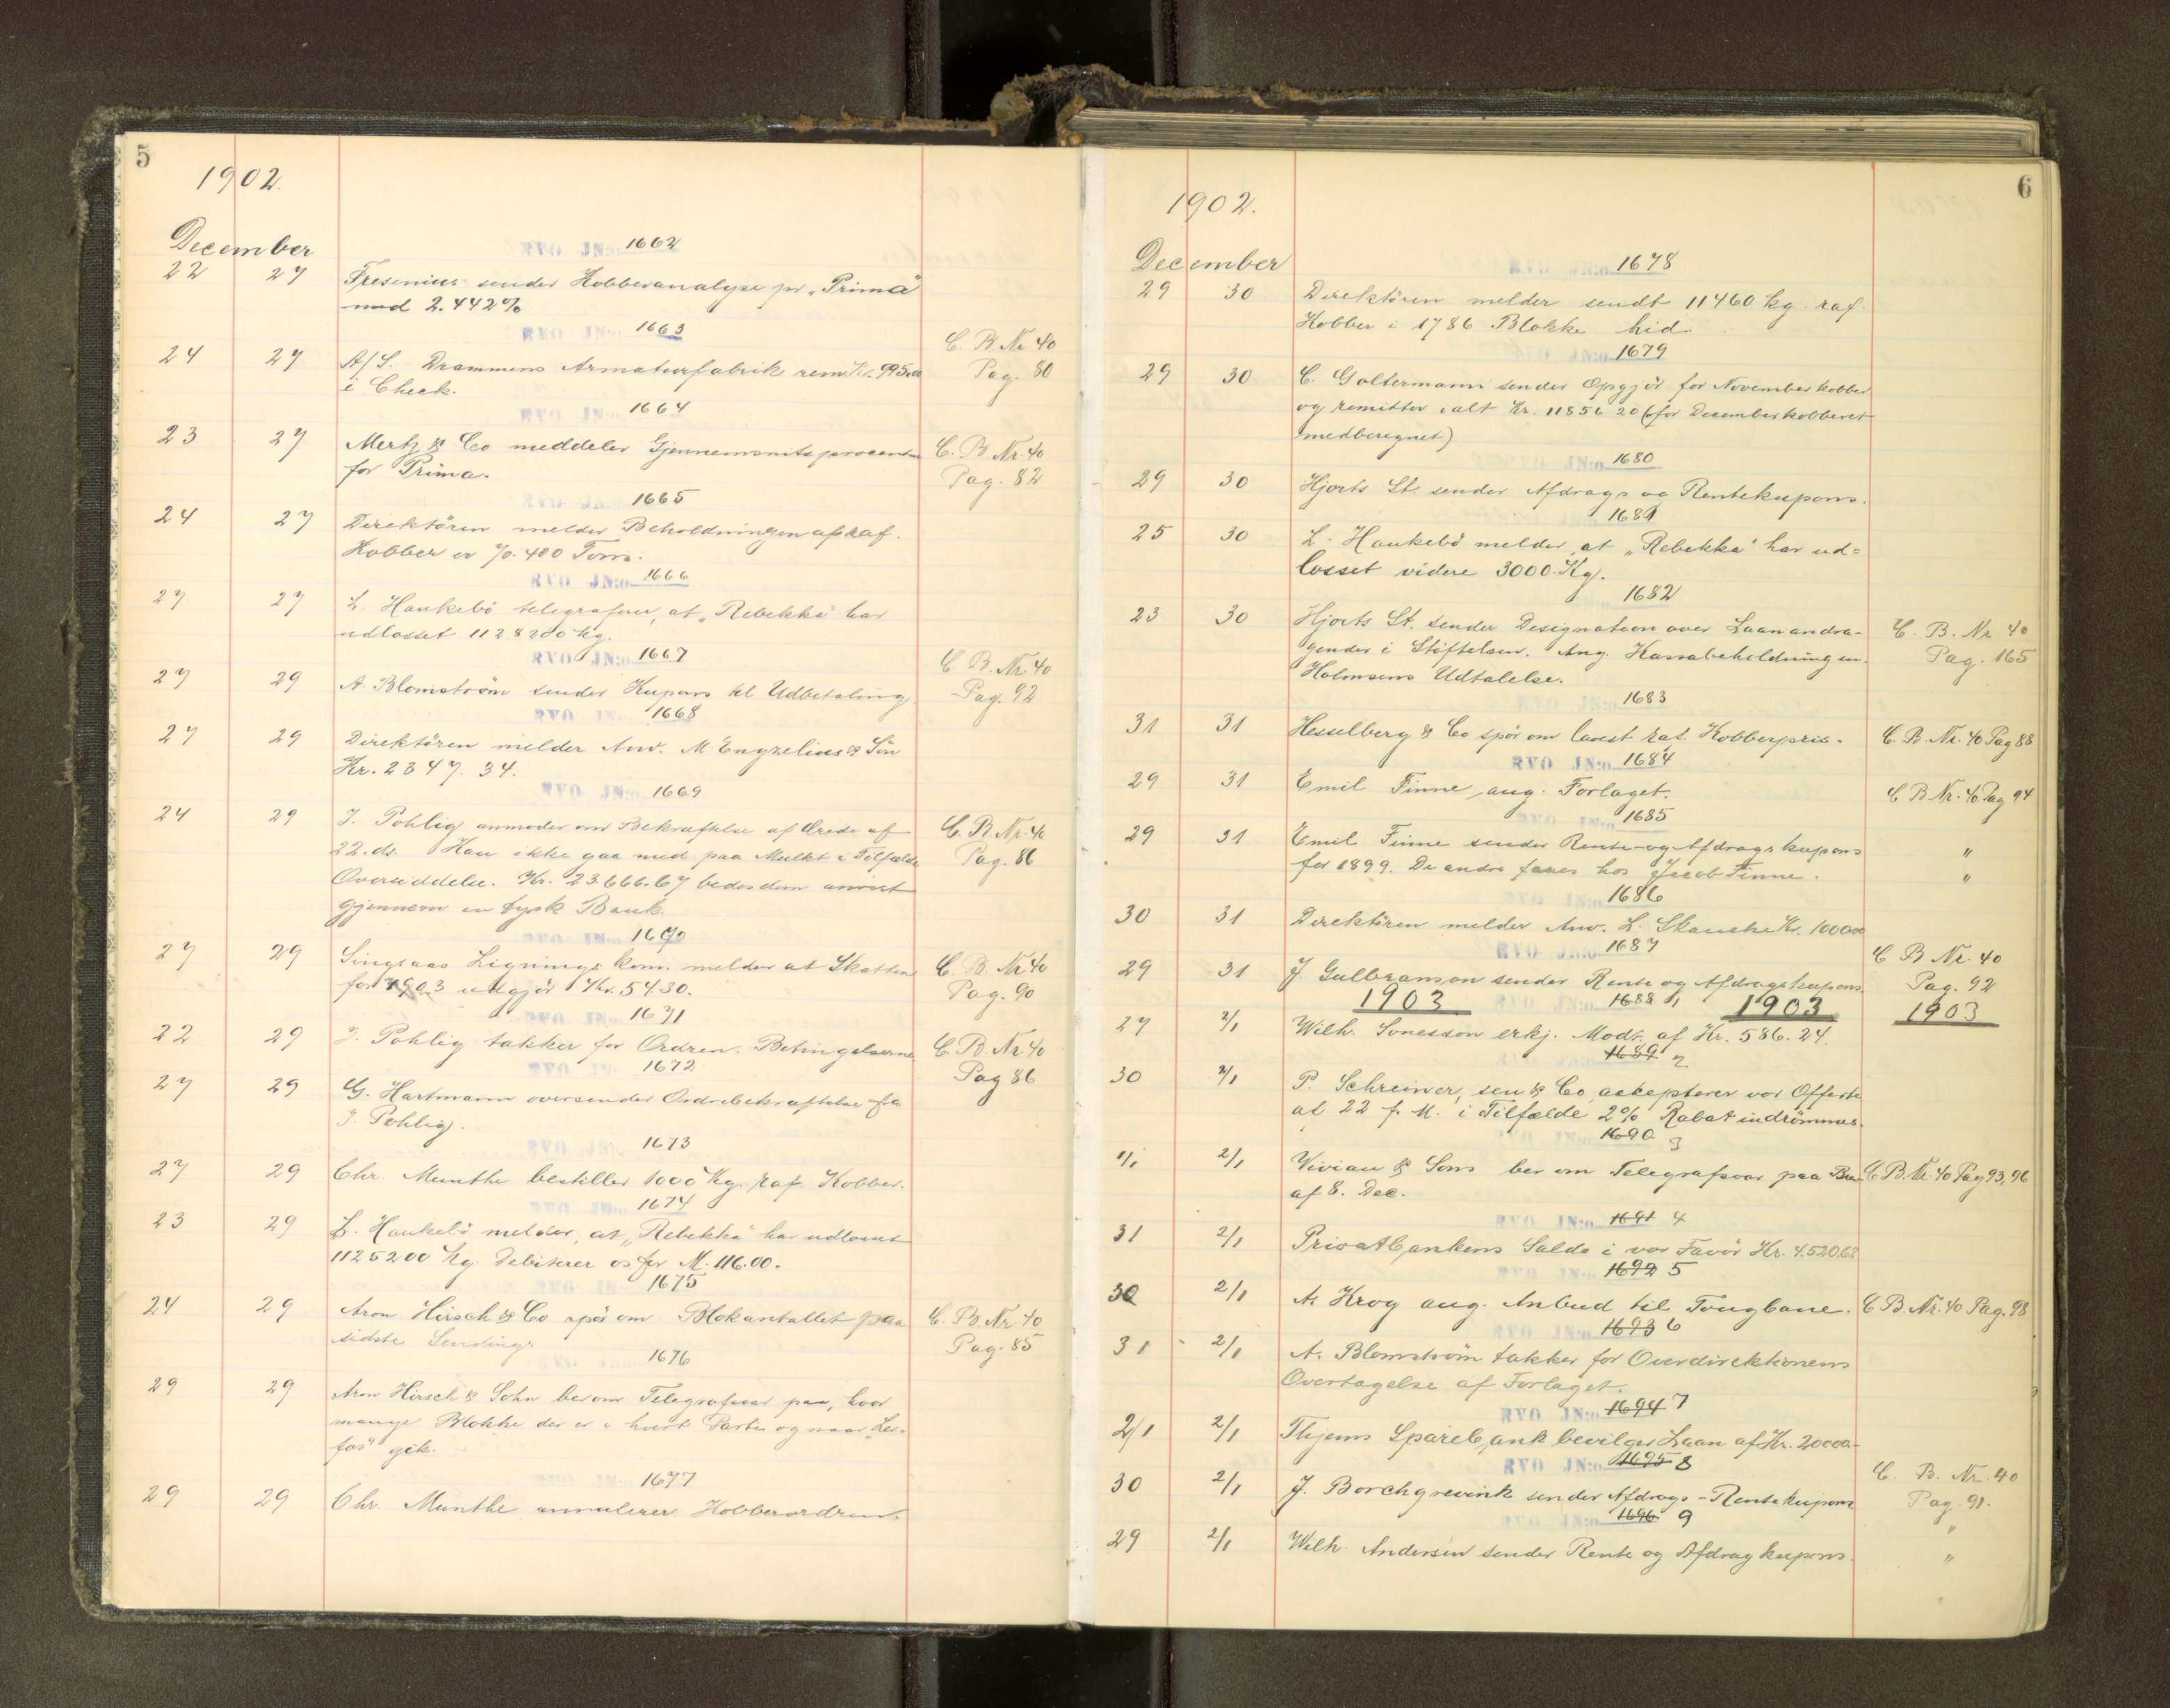 5
1902.
December
RVO JN:o 1662
22 27 Fresenius sender Kobberanalyse pr „Prima"
med 2.442%
RVO JN:o 1663
24 27 A/S. Drammens Armaturfabrik rem. Kr. 995.00 C. B. Nr 40
i Check. Pag. 80
RVO JN:o 1664
23 27 Mertz & Co meddeler Gjennemsnitsprocenten C. B. Nr. 40
for Prima. Pag. 82
RVO JN:o 1665
24 27 Direktören melder Beholdningen af raf.
Kobber er 400 Tons.
RVO JN:o 1666
27 27 L. Haukebö telegraferer, at „Rebekka" har
udlosset 1128200 kg.
RVO JN:o 1667
27 29 A. Blomström sender Kupons til Udbetaling C. B. Nr. 40
Pag. 92
RVO JN:o 1668
27 29 Direktören melder Anv. M Engzelius & Sön
Kr. 2347. 34.
RVO JN:o 1669
24 29 J. Pohlig anmoder om Bekræftelse af Ordre af C. B. Nr. 40
22. ds. Kan ikke gaa med paa Mulkt i Tilfælde Pag. 86
Kr. 23.666.67 bedes dem anvist
gjennem en tysk Bank.
RVO JN:o 1670
27 29 Singsaas Ligningskom. melder at Skatten C. B. Nr 40
for 1903 udgjör Kr. 5430. Pag. 90
RVO JN:o 1671
22 29 J. Pohlig takker for Ordren. Betingelserne C. B. Nr. 40
Pag 86
RVO JN:o 1672
27 29 G. Hartmann oversender Ordrebekræftelse fra
J. Pohlig.
RVO JN:o 1673
27 29 Chr. Munthe bestiller 1000 Kg. raf. Kobber.
RVO JN:o 1674
23 29 L. Haukebö melder, at „Rebekka" har udlosset
1125200 Kg. Debiterer os for M. 116.00.
RVO JN:o 1675
24 29 Aron Hirsch & Co spör om Blokantallet paa C. B. Nr. 40
sidste Sending. Pag. 85
RVO JN:o 1676
29 29 Aron Hirsch & Sohn ber om Telegrafsvar paa, hvor
mange Blokke der er i hvert Parti og naar „Ler-
fos" gik.
RVO JN:o 1677
29 29 Chr. Munthe annulerer Kobberordren.
6
1902.
December
RVO JN:o 1678
29 30 Direktören melder sendt 11460 kg. raf.
Kobber i 1786 Blokke hid.
RVO JN:o 1679
29 30 C. Goltermann sender Opgjör for Novemberkobber
og remitter ialt Kr. 11856 20 (for Decemberkobberet
medberegnet)
RVO JN:o 1680
29 30 Hjorts St. sender Afdrags og Rentekupons.
1681
25 30 L. Haukebö melder, at „Rebekka" har ud=
losset videre 3000 Kg.
1682
23 30 Hjorts St. sender Designation over Laanandra- C. B. Nr 40
gender i Stiftelsen. Ang. Kassabeholdningen. Pag. 165
Holmsens Udtalelse.
RVO JN:o 1683
31 31 Hesselberg & Co spör om lavest raf. Kobberpris. C. B. Nr. 40 Pag 88
RVO JN:o 1684
29 31 Emil Finne, ang. Forlaget. C B Nr. 40 Pag 94
RVO JN:o 1685
29 31 Emil Finne sender Rente- og Afdragskupons "
for 1899. De andre faaes hos Jacob Finne. "
RVO JN:o 1686
30 31 Direktören melder Anv. L. Skancke Kr. 1000 00
RVO JN:o 1687
29 31 J. Gulbranson sender Rente og Afdragskupons. C B Nr. 40
Pag. 92
1903 RVO JN:o 1688 1 1903 1903
27 2/1 Wilh. Sonesson erkj. Modt. af Kr. 586. 24.
RVO JN:o 1689 2
30 2/1 P. Schreiner, sen & Co, ackepterer vor Offerte
af 22 f. M. i Tilfælde 2% Rabat indrömmes.
RVO JN:o 1690 3
1/1 2/1 Vivian & Sons ber om Telegrafsvar paa Brev C B. Nr. 40 Pag 93, 96
af 8. Dec.
RVO JN:o 1691 4
31 2/1 Privatbankens Saldo i vor Favör Kr. 4.520.62
RVO JN:o 1692 5
30 2/1 A. Krog ang. Anbud til Tougbane. C B. Nr. 40 Pag. 98
RVO JN:o 1693 6
31 2/1 A. Blomström takker for Overdirektionens
Overtagelse af Forlaget.
RVO JN:o 1694 7
2/1 2/1 Thjems Sparebank bevilger Laan af Kr. 20000.-
RVO JN:o 1695 8
30 2/1 J. Borchgrevink sender Afdrags - Rentekupons C. B. Nr. 40
Pag. 91.
RVO JN:o 1696 9 "
29 2/1 Wilh. Andersen sender Rente og Afdragkupons. "